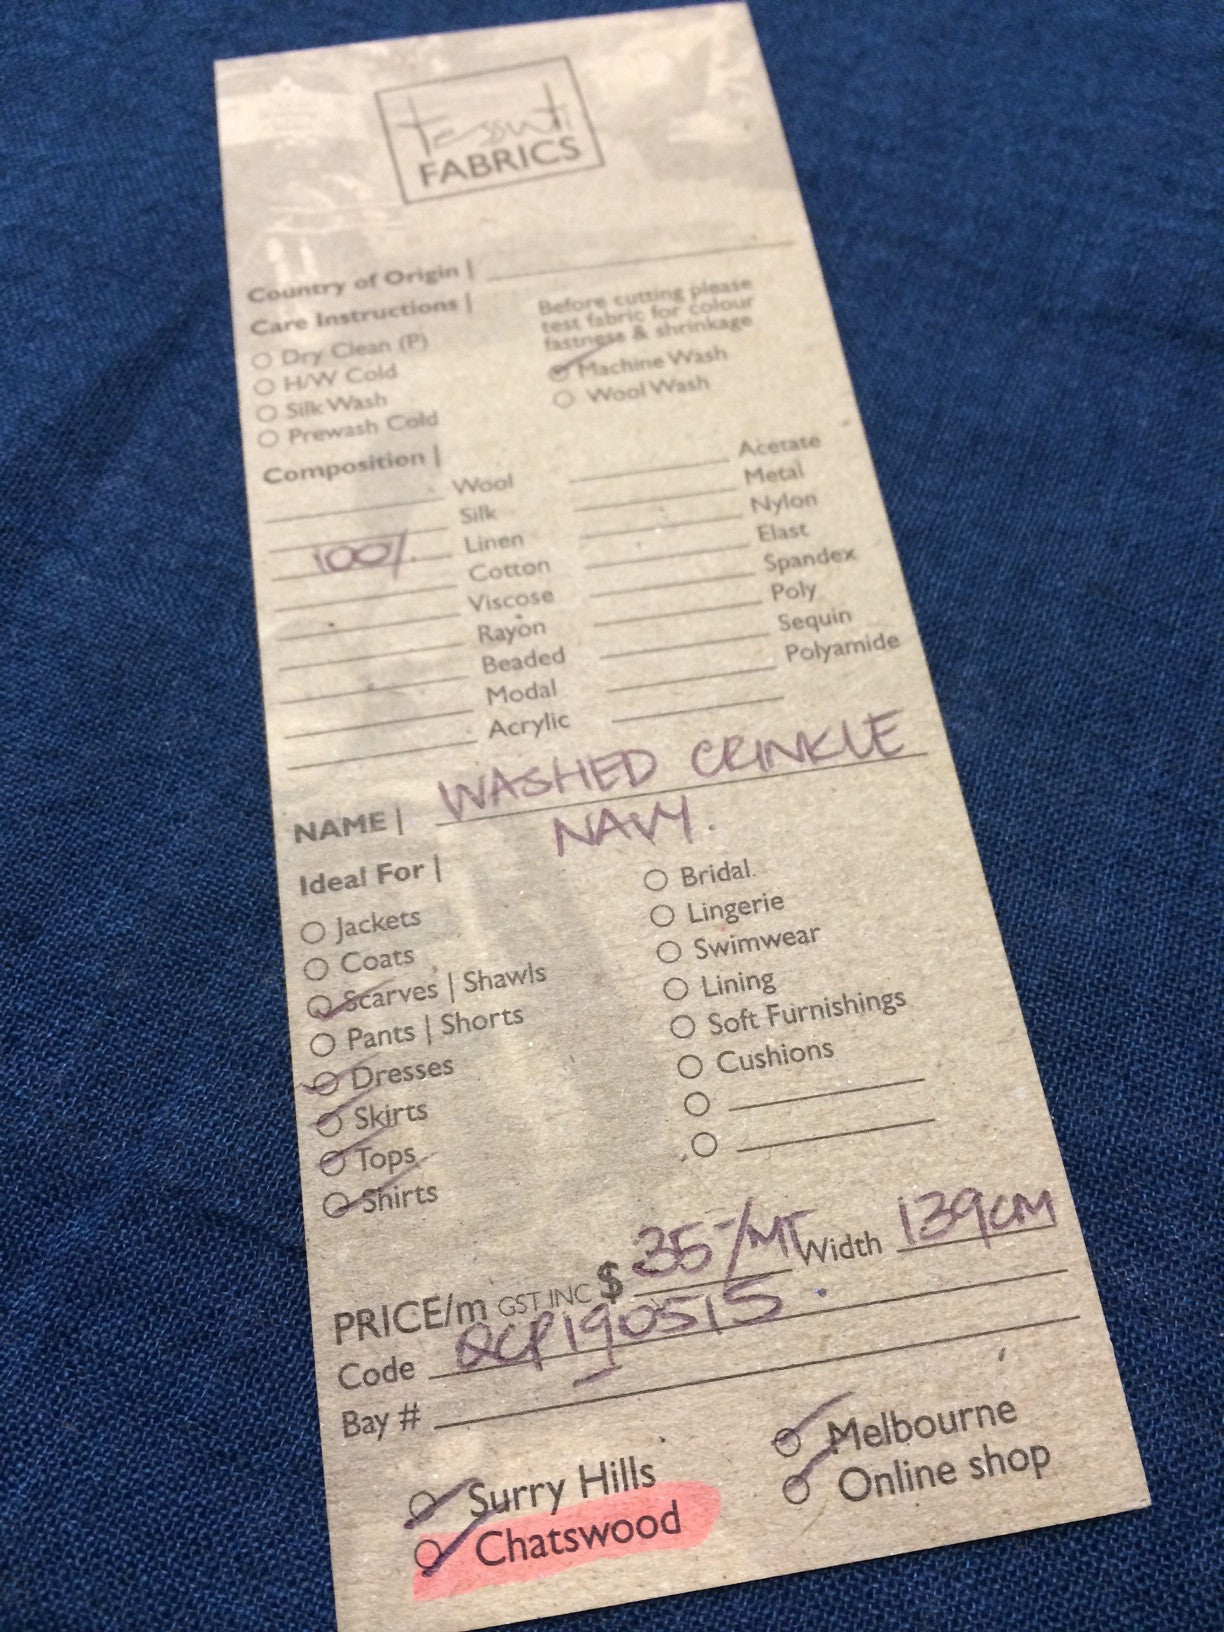 Tessuti
FABRICS
Country of Origin |
Care Instructions |
Before cutting please
test fabric for colour
fastness & shrinkage
Dry Clean (P)
H/W Cold
Silk Wash
Prewash Cold
Machine Wash
Wool Wash
Composition |
Wool
Silk
100% Linen
Cotton
Viscose
Rayon
Beaded
Modal
Acrylic
Acetate
Metal
Nylon
Elast
Spandex
Poly
Sequin
Polyamide
NAME | WASHED CRINKLE
NAVY.
Ideal For |
Jackets
Coats
Scarves | Shawls
Pants | Shorts
Dresses
Skirts
Tops
Shirts
Bridal
Lingerie
Swimwear
Lining
Soft Furnishings
Cushions
PRICE/m GST INC $ 35-/MT Width 139CM
Code QCP190515.
Bay #
Surry Hills
Chatswood
Melbourne
Online shop